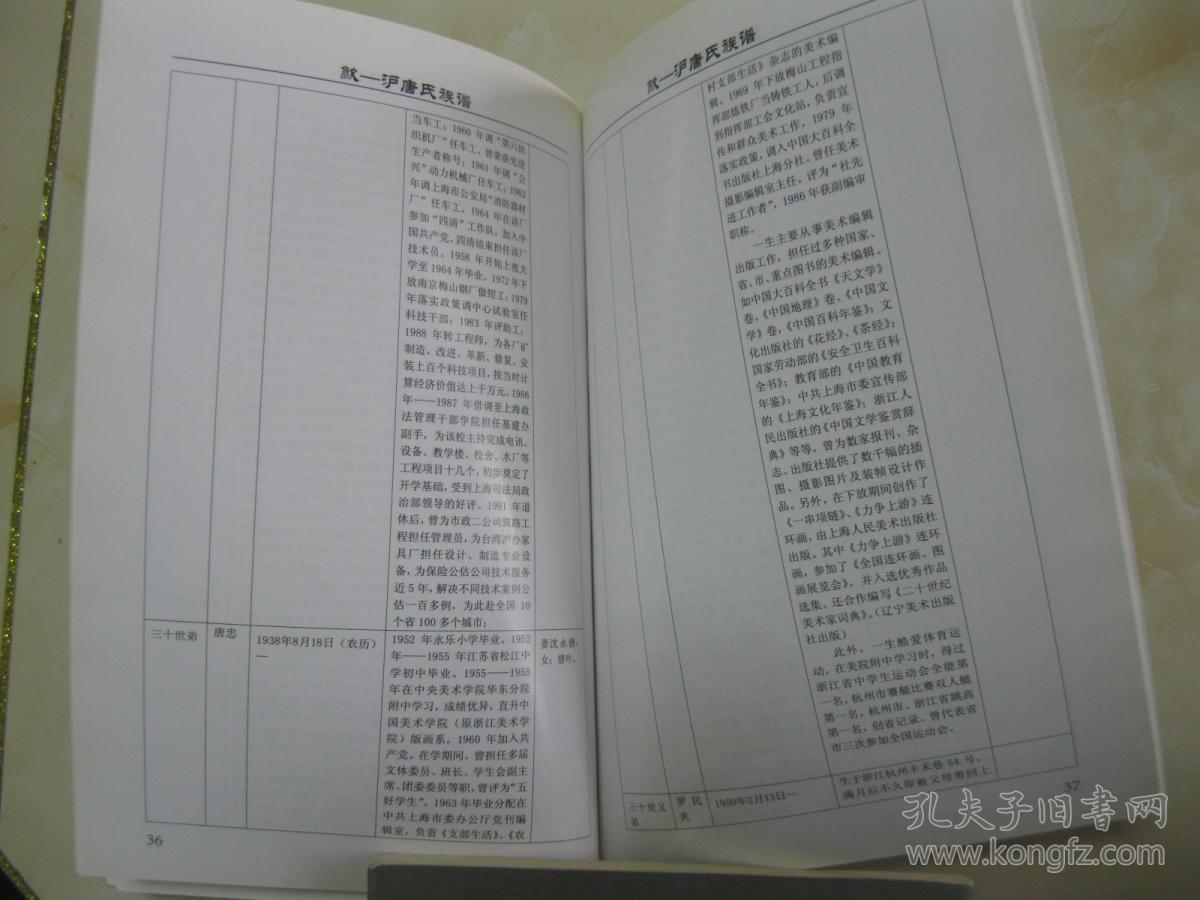 歙—沪唐氏族谱
当车工；1960 年调“第六纺
织机厂”任车工，曾荣获先进
生产者称号；1961 年调“公
兴”动力机械厂任车工；1962
年调上海市公安局“消防器材
厂”任车工，1964 年在该厂
参加“四清”工作队，加入中
国共产党，四清结束担任该厂
技术员。1958 年开始上夜大
学至 1964 年毕业。1972 年下
放南京梅山钢厂做钳工；1979
年落实政策调中心试验室任
科技干部；1983 年评助工；
1988 年转工程师，为各厂矿
制造、改进、革新、修复、安
装上百个科技项目，按当时计
算经济价值达上千万元。1986
年——1987 年借调至上海政
法管理干部学院担任基建办
副手，为该校主持完成电讯、
设备、教学楼、校舍、水厂等
工程项目十几个，初步奠定了
开学基础，受到上海司法局政
治部领导的好评。1991 年退
休后，曾为市政二公司筑路工
程担任管理员，为台湾沪办家
具厂担任设计、制造专业设
备，为保险公估公司技术服务
近 5 年，解决不同技术案例公
估一百多例，为此赴全国 10
个省 100 多个城市；
三十世弟
唐忠
1938年8月18日（农历）
—
1952 年永乐小学毕业。1952
年——1955 年江苏省松江中
学初中毕业。1955——1958
年在中央美术学院华东分院
附中学习，成绩优异，直升中
国美术学院（原浙江美术学
院）版画系。1960 年加入共
产党。在学期间，曾担任多届
文体委员、班长、学生会副主
席、团委委员等职，曾评为“五
好学生”。1963 年毕业分配在
中共上海市委办公厅党刊编
辑室，负责《支部生活》、《农
妻沈永倩，
女：唐叶，
36
歙—沪唐氏族谱
村支部生活》杂志的美术编
辑。1969 年下放梅山工程指
挥部炼铁厂当铸铁工人，后调
到指挥部工会文化站，负责宣
传和群众美术工作，1979 年
落实政策，调入中国大百科全
书出版社上海分社。曾任美术
摄影编辑室主任，评为“社先
进工作者”，1986 年获副编审
职称。
一生主要从事美术编辑
出版工作，担任过多种国家、
省、市、重点图书的美术编辑。
如中国大百科全书《天文学》
卷、《中国地理》卷、《中国文
学》卷，《中国百科年鉴》；文
化出版社的《花经》、《茶经》；
国家劳动部的《安全卫生百科
全书》；教育部的《中国教育
年鉴》；中共上海市委宣传部
的《上海文化年鉴》；浙江人
民出版社的《中国文学鉴赏辞
典》等等，曾为数家报刊、杂
志、出版社提供了数千幅的插
图、摄影图片及装帧设计作
品。另外，在下放期间创作了
《一串项链》、《力争上游》连
环画，由上海人民美术出版社
出版。其中《力争上游》连环
画，参加了《全国连环画、图
画展览会》，并入选优秀作品
选集。还合作编写《二十世纪
美术家词典》。（辽宁美术出版
社出版）
此外，一生酷爱体育运
动，在美院附中学习时，得过
浙江省中学生运动会全能第
一名，杭州市赛艇比赛双人艇
第一名，杭州市、浙江省跳高
第一名，创省记录。曾代表省
市三次参加全国运动会。
三十世义
弟
罗民
炎
1950年2月13日—
生于浙江杭州丰禾巷 54 号。
满月后不久即被父母带回上
37
孔夫子旧书网
www.kongfz.com